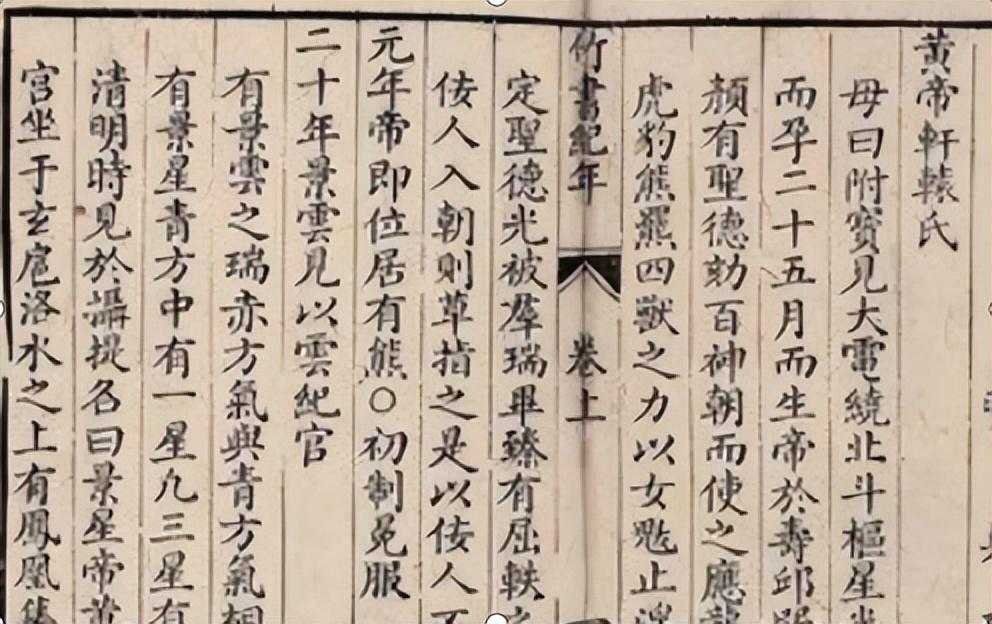 黄帝軒轅氏
母曰附寶見大電繞北斗樞星光
而孕二十五月而生帝於壽邱
顏有聖德劾百神朝而使之應龍
虎豹熊羆四獸之力以女魃止淫
竹書紀年 卷上
定聖德光被羣瑞畢臻有屈軼之
佞人入朝則草指之是以佞人不
元年帝即位居有熊○初制冕服
二十年景雲見以雲紀官
有景雲之瑞赤方氣與青方氣相
有景星青方中有一星九三星有
清明時見於攝提名曰景星帝黃
宫坐于玄扈洛水之上有鳳凰集